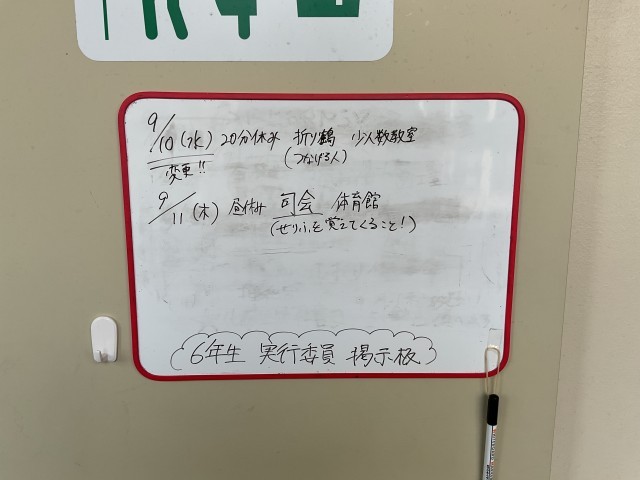 9/10(水) 20分休み 折り鶴 少人数教室
変更!! (つなげる人)
9/11(木) 昼休み 司会 体育館
(せりふを覚えてくること!)
6年生 実行委員 掲示板